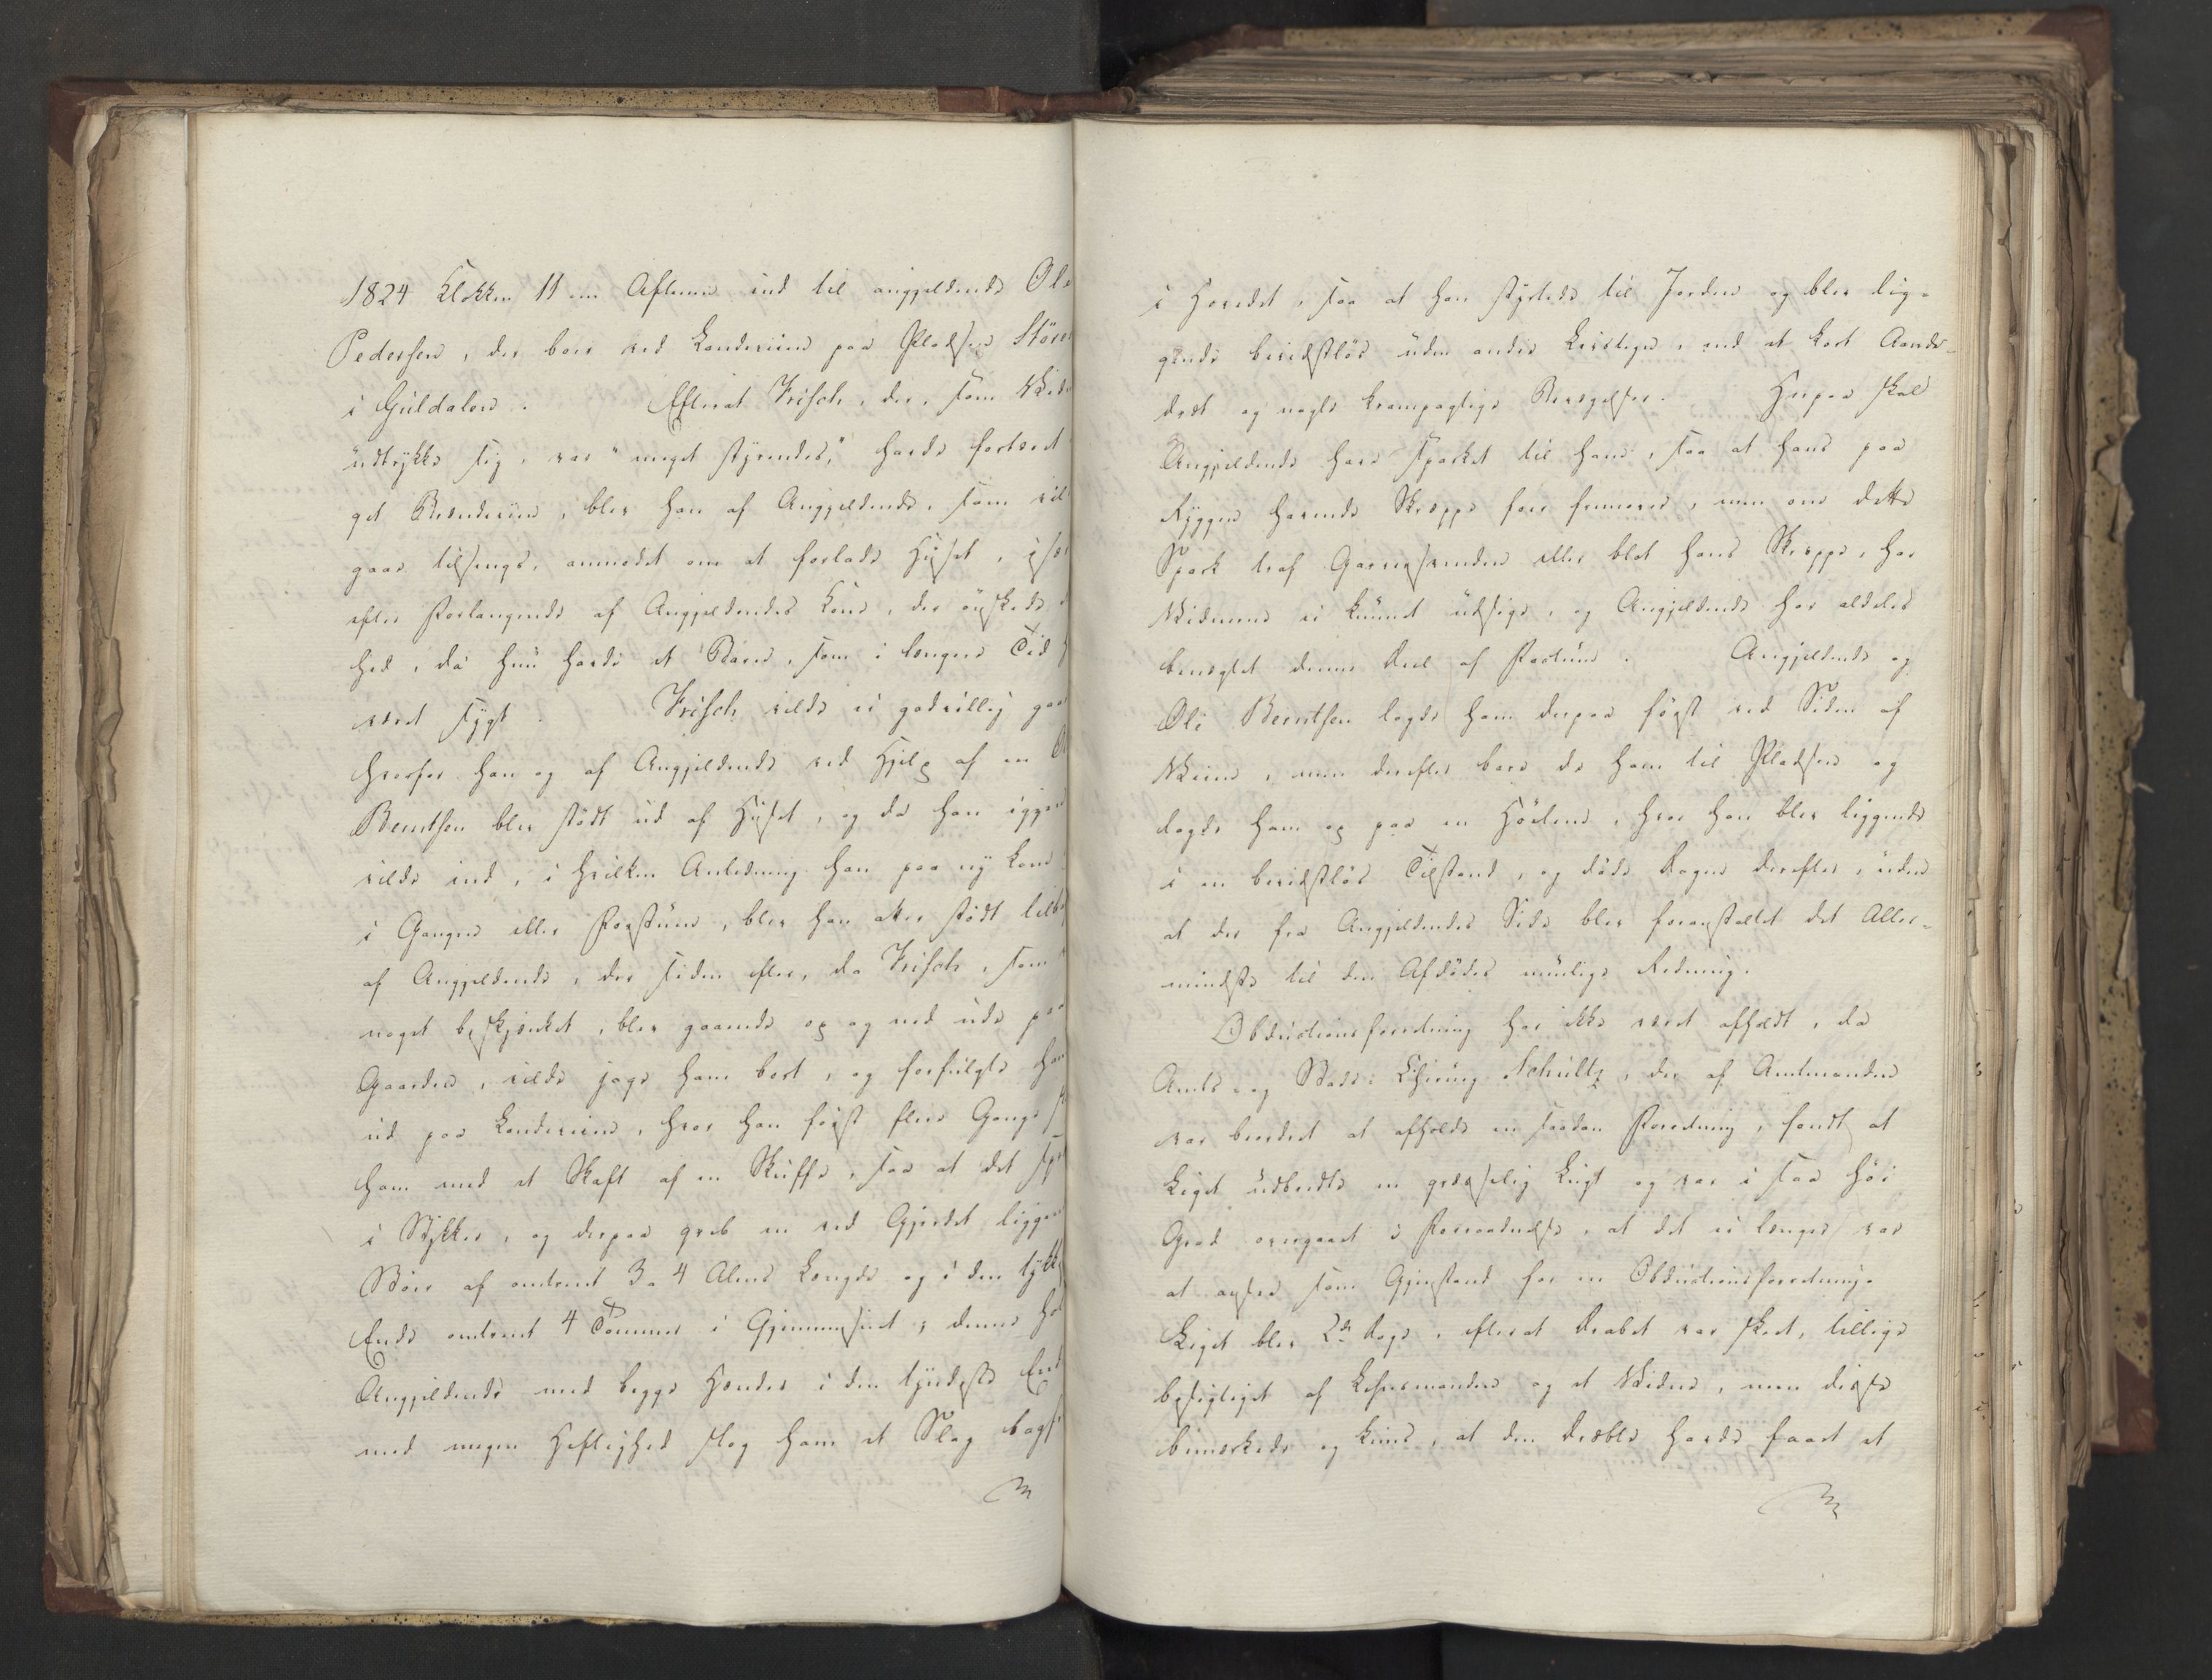 1824 Klokken 11 om Aftenen ind til angjeldende Ole
Pedersen, der boer ved Landeveien paa Pladsen Stören
i Guldalen. Efterat Frisch, der, som Vidne
udtrykke sig, var "meget styrendes," havde fortæret
get Brændeviin, blev han af Angjeldende, som vil
gaae tilsengs, anmodet om at forlade Huset, især
efter Forlangende af Angjeldendes Kone, der önskede
hed, da hun havde et Barn, som i længere Tid h
været sygt. Frisch vilde ei godvillig gaae
hvorfor han og af Angjeldende ved Hjelp af en O
Berntsen blev stödt ud af Huset, og da han igjen
vilde ind, i hvilken Anledning han paa ny kom
i Gangen eller Forstuen, blev han atter stödt tilba
af Angjeldende, der siden efter, da Frisch, som
noget beskjenket, blev gaaende op og ned ude paa
Gaarden, vilde jage ham bort, og forfulgte ham
ud paa Landeveien, hvor han först flere Gange s
ham med et Skaft af en Skuffe, saa at det
i Stykker, og derpaa greb en ved Gjerdet liggen
Stör af omtrent 3 a 4 Alens Længde og i den tykk
Ende omtrent 4 Tommer i Gjennemsnit; denne
Angjeldende med begge Hænder i den tyndeste End
med megen Heftighed slog ham et Slag bag
i Hovedet, saa at han styrtede til Jorden og blev lig-
gende bevidstlös uden andet Livstegn, end et kort Aande-
dræt og nogle krampagtige Bevægelser. Herpaa skal
Angjeldende have sparket til ham, saa at hans paa
Ryggen havende Skræppe foer fremover, men om dette
Spark traf Gjerningsmanden eller blot hans Skræppe, har
Vidnerne ei kunnet udsige, og Angjeldende har aldeles
benægtet denne Deel af Factum. Angjeldende og
Ole Berntsen lagde ham derpaa först ved Siden af
Veien, men derefter bare de ham til Pladsen og
lagde ham op paa en Höelem, hvor han blev liggende
i en bevidstlös Tilstand, og döde Dagen derefter, uden
at der fra Angjeldendes Side blev foranstaltet det Aller-
mindste til den Afdödes muelige Redning.
Obductionsforretning har ikke været afholdt, da
Amts- og Stads-Chirurg Schultz, der af Amtmanden
var beordret at afholde en saadan Forretning, fandt at
Liget udbredte en græsselig Lugt og var i saa höi
Grad overgaaet i Forraadnelse, at det ei længer var
at ansee som Gjenstand for en Obductionsforretning.
Liget blev 2de Dage, efterat Drabet var skeet, tillige
besigtiget af Lehnsmanden og et Vidne, men disse
bemærkede og kuns, at den Dræbte havde faaet et